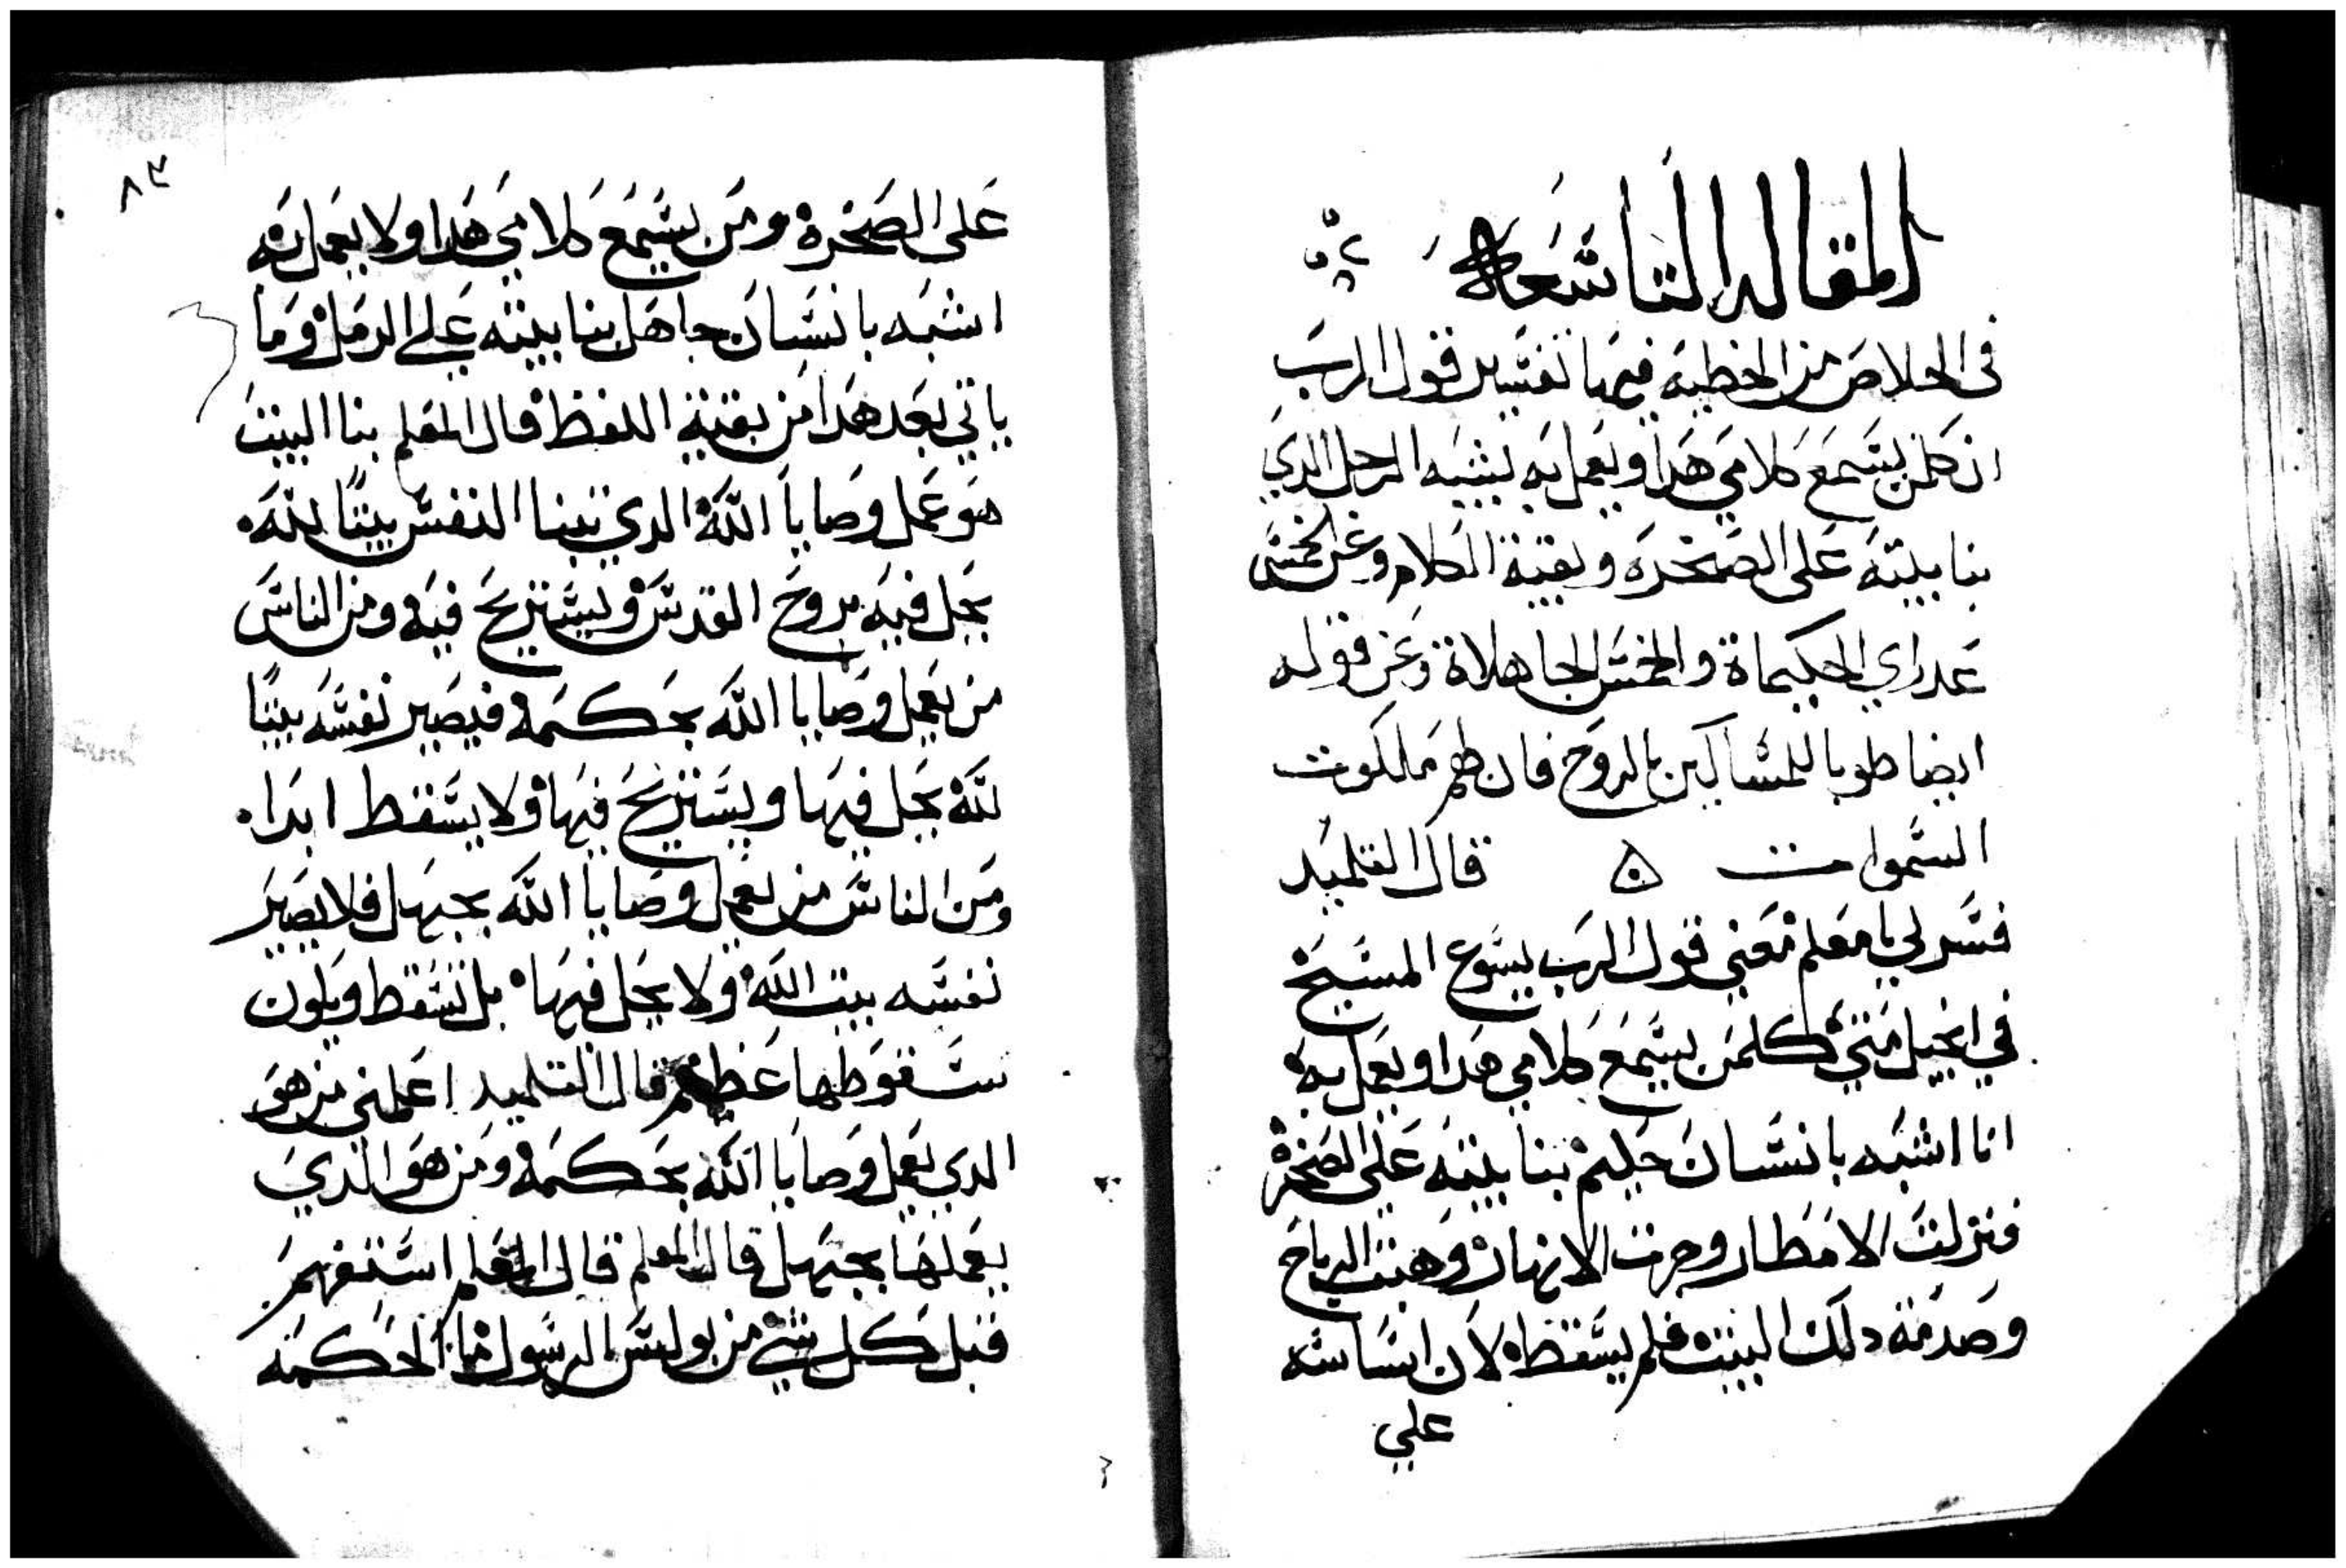 المقاله التاسعه
في الخلاص من الخطيه فيها تفسير قول الرب
ان كلمن يسمع كلامي هدا ويعمل به يشبه الرجل الذي
بنا بيته على الصخره وبقية الكلام وعن الخمس
عداري الحكيماة والخمس الجاهلاة وعن قوله
ايضا طوبا للمساكين بالروح فان لهم ملكوت
السموات ۞ قال التلميد
فسر لي يا معلم معني قول الرب يسوع المسيح
في انجيل متي كلمن يسمع كلامي هدا ويعمل به
انا اشبه بانسان حكيم بنا بيته علي الصخرة
فنزلت الامطار وجرت الانهار وهبت الرياح
وصدمة دلك البيت فلم يسقط لان اساسه
علي
٨٣
على الصخره ومن يسمع كلامي هدا ولا يعمل به
اشبه بانسان جاهل بنا بيته علي الرمل وما
ياتي بعد هدا من بقية اللفظ قال المعلم بنا البيت
هو عمل وصايا الله الدي تبنا النفس بيتا لله
يحل فيه بروح القدس ويستريح فيه ومن الناس
من يعمل وصايا الله بحكمه فيصير نفسه بيتا
لله يحل فيها ويستريح فيها ولا يسقط ابدا
ومن الناس من يعمل وصايا الله بجهل فلا يصير
نفسه بيت الله ولا يحل فيها بل تسقط ويكون
سقوطها عظيم قال التلميد اعلمني من هو
الدي يعمل وصايا الله بحكمه ومن هو الذي
يعملها بجهل قال المعلم قال المعلم استفهم
قبل كل شي من بولس الرسول ما الحكمه